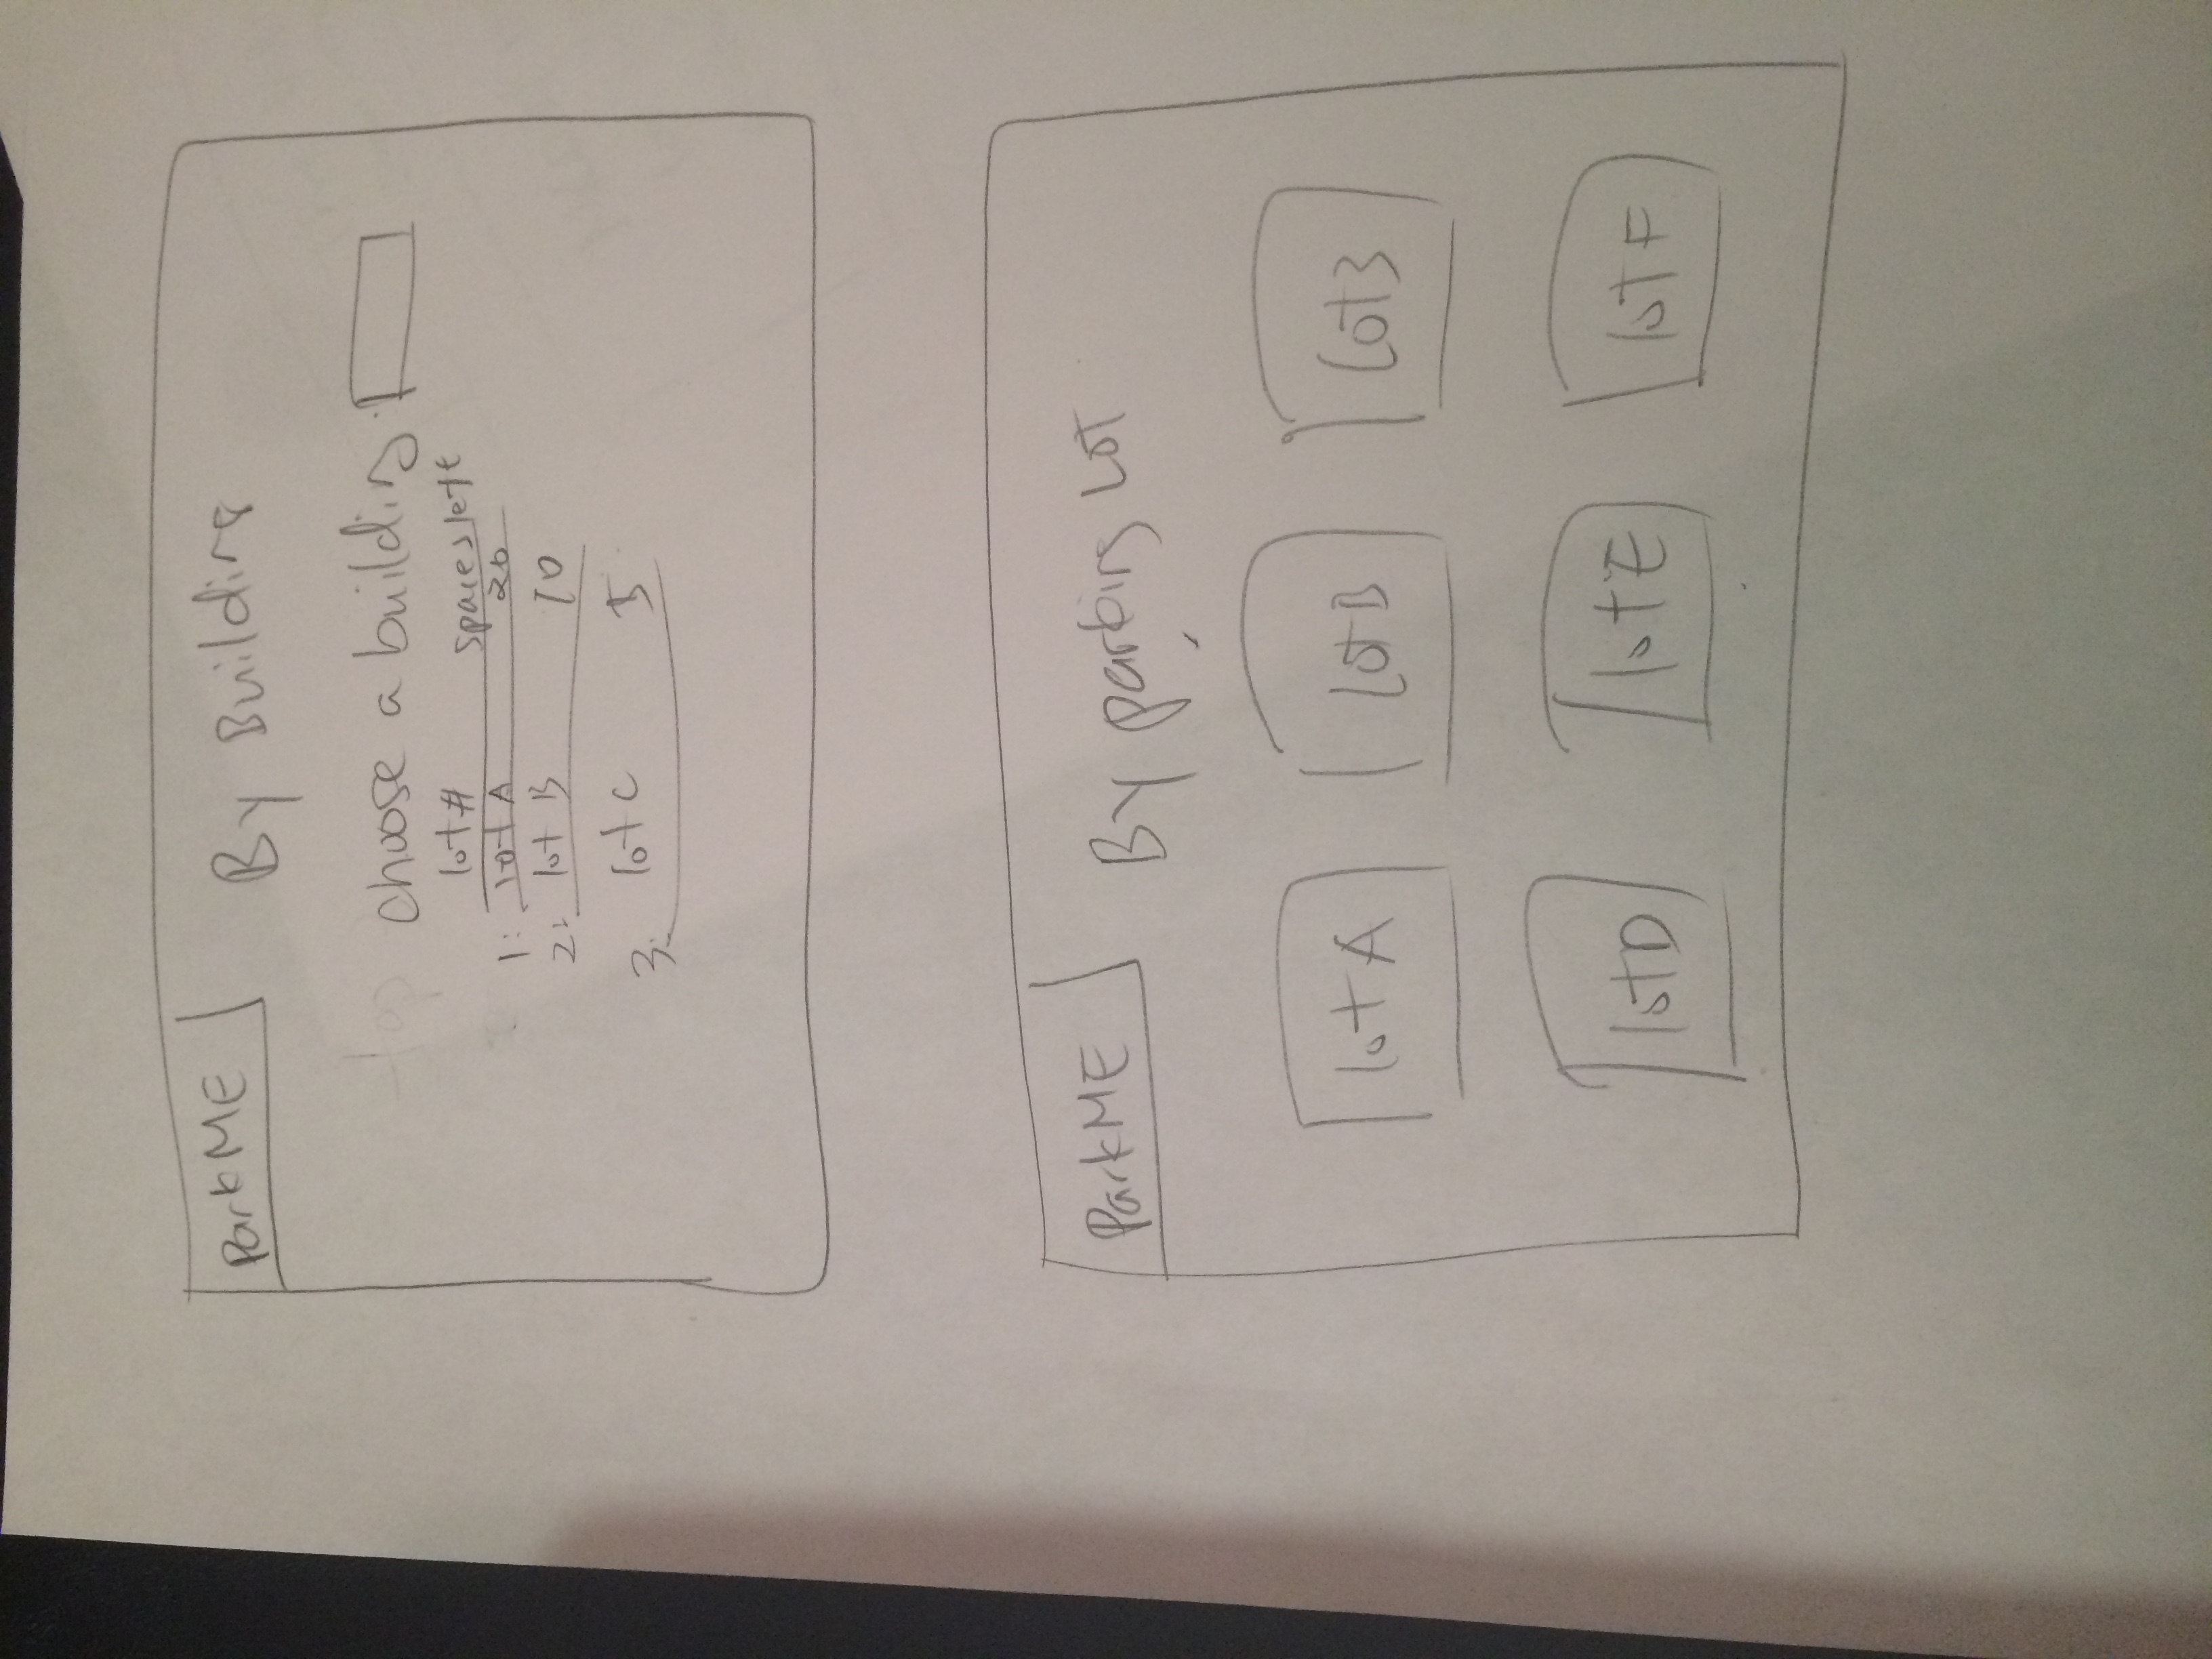 ParkME
By Building
choose a building:
lot # spaces left
1: lot A 20
2: lot B 10
3: lot C 5
ParkME
By parking LOT
lot A lot B lot 3
lot D lot E lot F